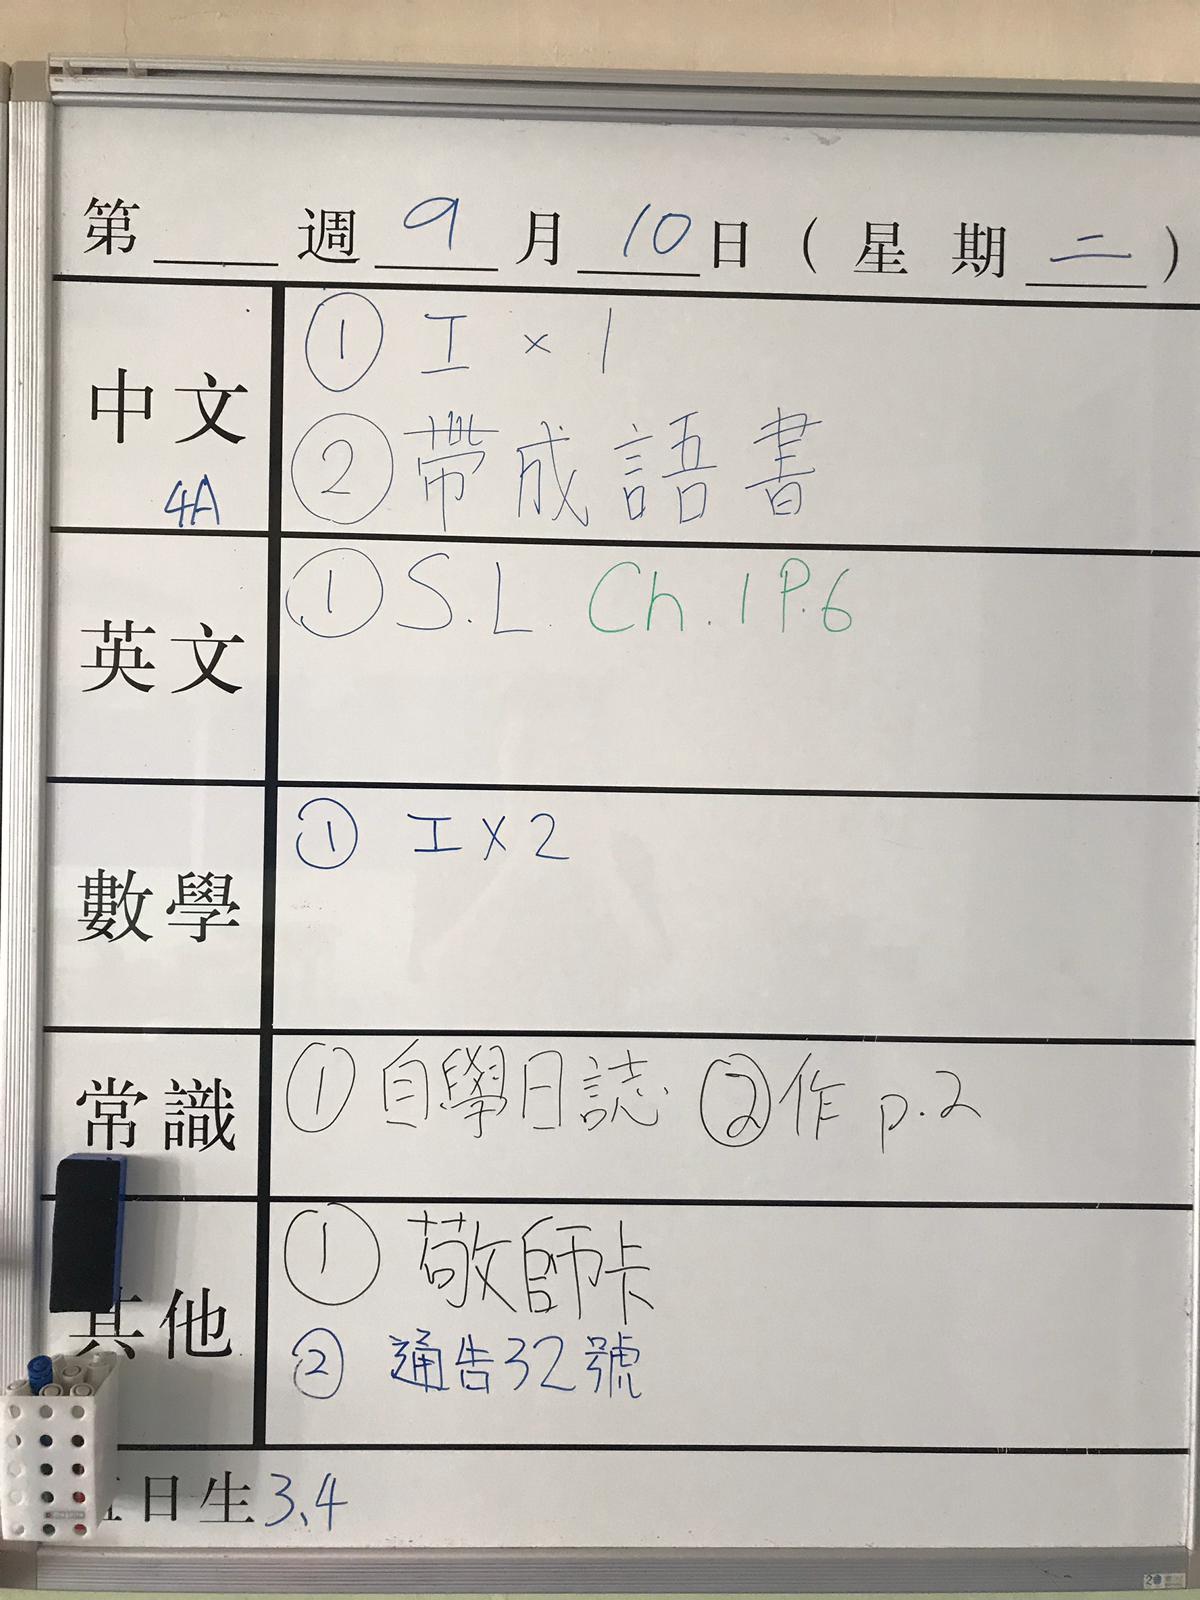 第 週 9 月 10 日 ( 星 期 二 )
中文
4A
① 工 × 1
② 帶成語書
英文
① S.L. Ch.1 P.6
數學
① 工 X 2
常識
① 自學日誌 ② 作 p.2
其他
① 敬師卡
② 通告32號
日生 3、4